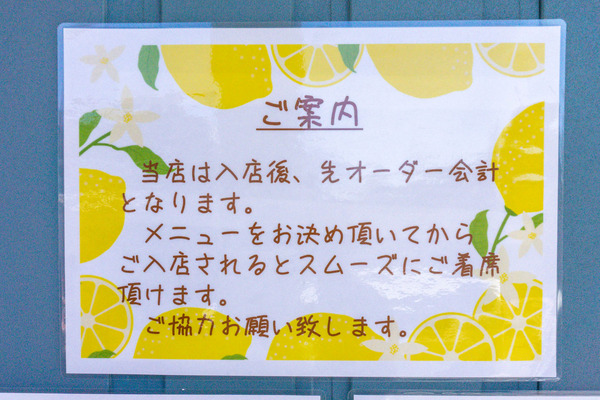 ご案内
当店は入店後、先オーダー会計
となります。
メニューをお決め頂いてから
ご入店されるとスムーズにご着席
頂けます。
ご協力お願い致します。